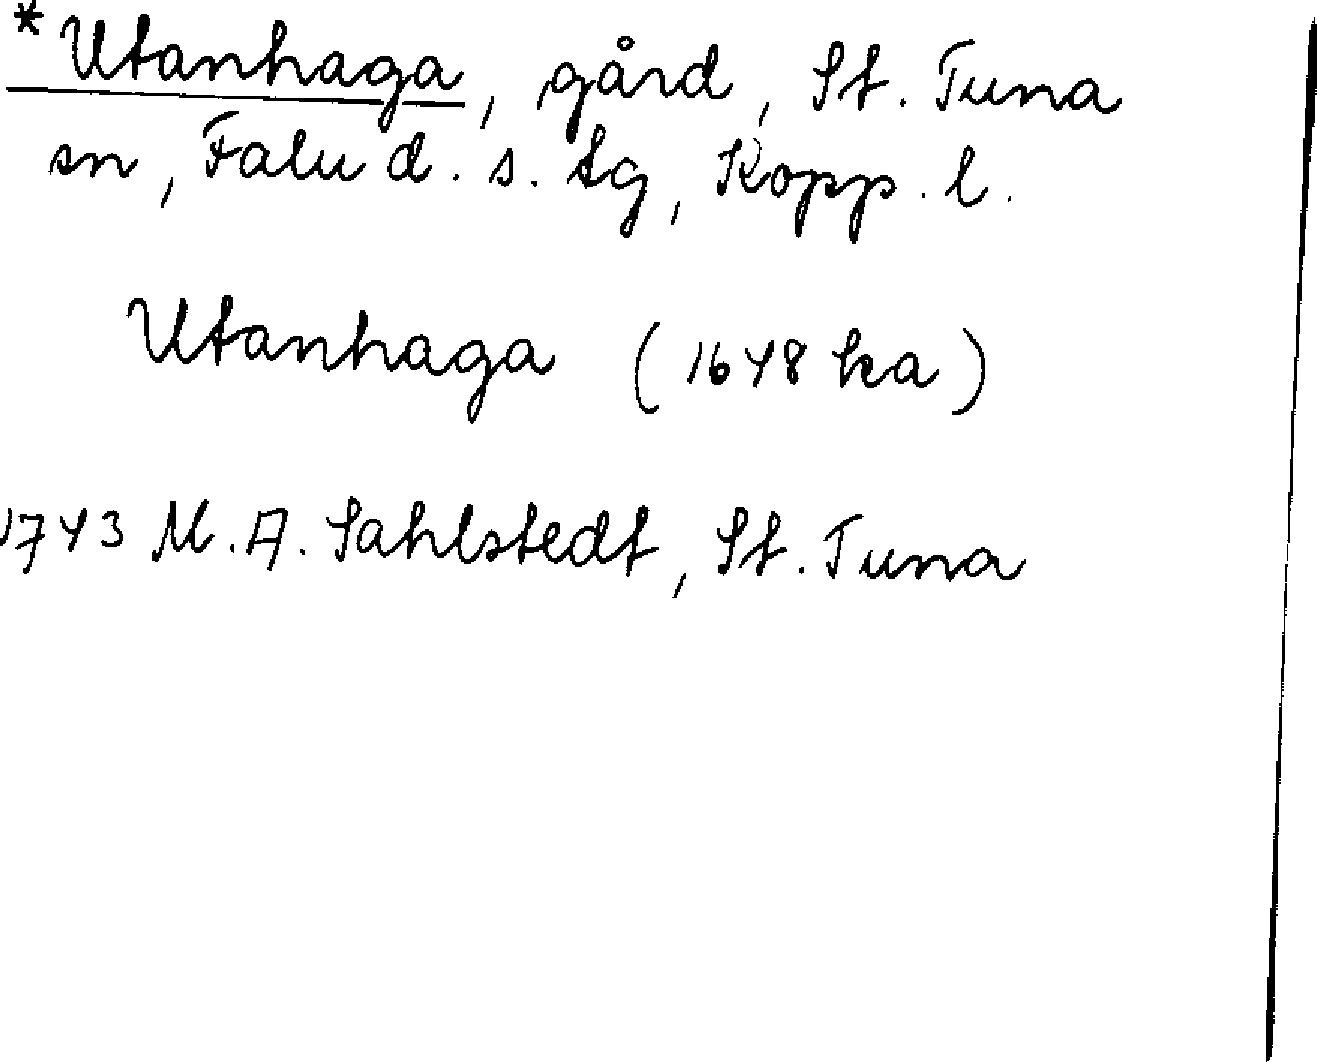 *Utanhaga, gård, St. Tuna
sn, Falu d. s. tg, Kopp. l.
Utanhaga (1648 ka)
1743 M. A. Sahlstedt, St. Tuna